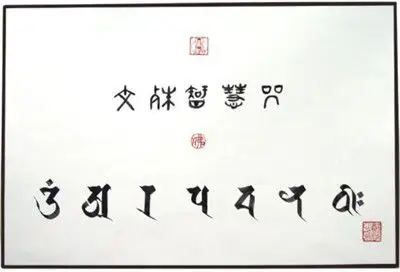 文殊智慧咒
𑖌𑖼 𑖀 𑖨 𑖢 𑖓 𑖡 𑖠𑖱𑖾